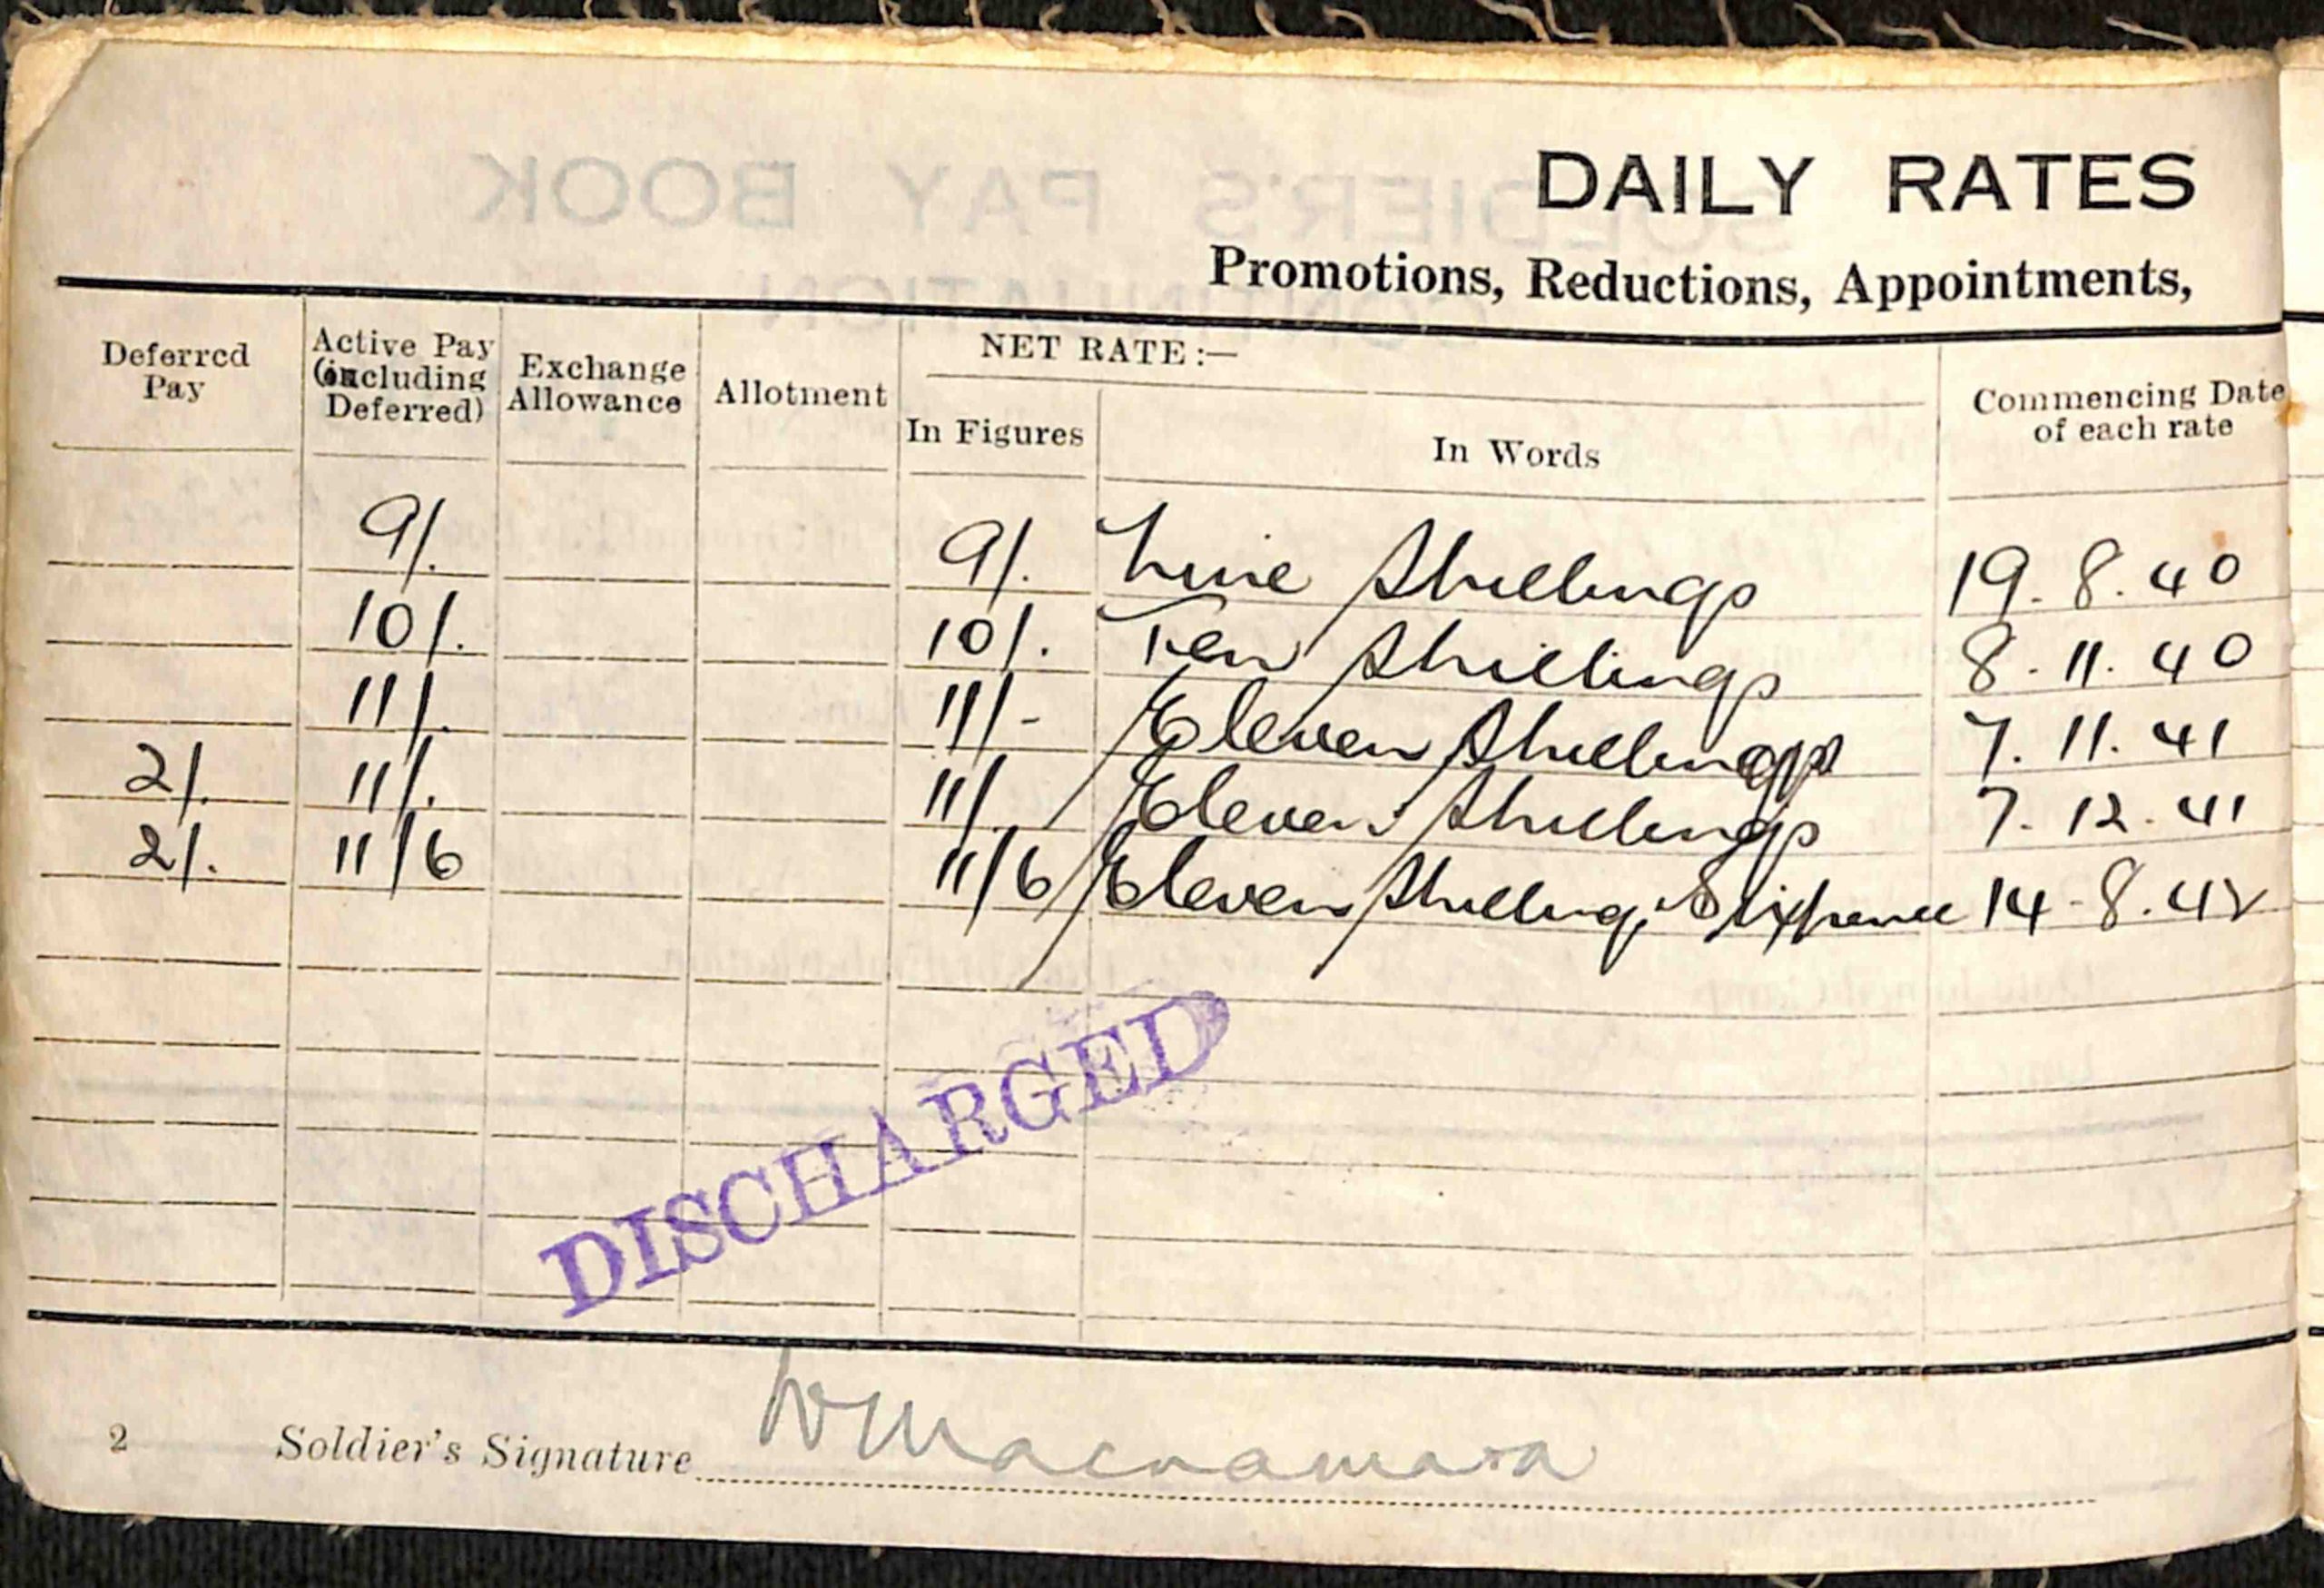 DAILY RATES
Promotions, Reductions, Appointments,
Deferred Pay
Active Pay (including Deferred)
Exchange Allowance
Allotment
NET RATE :—
In Figures
In Words
Commencing Date of each rate
9/. 9/. Nine Shillings 19.8.40
10/. 10/. Ten Shillings 8.11.40
11/. 11/- Eleven Shillings 7.11.41
2/. 11/. 11/. Eleven Shillings 7.12.41
2/. 11/6 11/6 Eleven Shillings Sixpence 14-8.42
DISCHARGED
2 Soldier's Signature W Macnamara